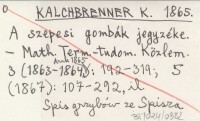 0 KALCHBRENNER K. 1865.
A szepesi gombák jegyzéke.
– Math. Term-tudom. Közlem.
1865
3 (1863-1864): 192-319; 5
(1867): 107-292, il.
Spis grzybów ze Spisza